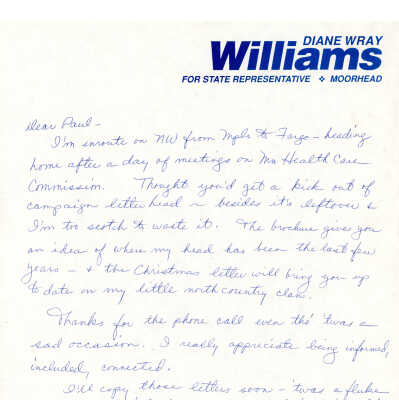 DIANE WRAY
Williams
FOR STATE REPRESENTATIVE ❖ MOORHEAD
Dear Paul -
I'm enroute on NW from Mpls to Fargo - heading
home after a day of meetings on Mn Health Care
Commission. Thought you'd get a kick out of
campaign letter head ~ besides it's leftover &
I'm too scotch to waste it. The brochure gives you
an idea of where my head has been the last few
years - & the Christmas letter will bring you up
to date on my little north country clan.
Thanks for the phone call even tho' 'twas a
sad occasion. I really appreciate being informed,
included, connected.
I'll copy those letters soon - 'twas a fluke